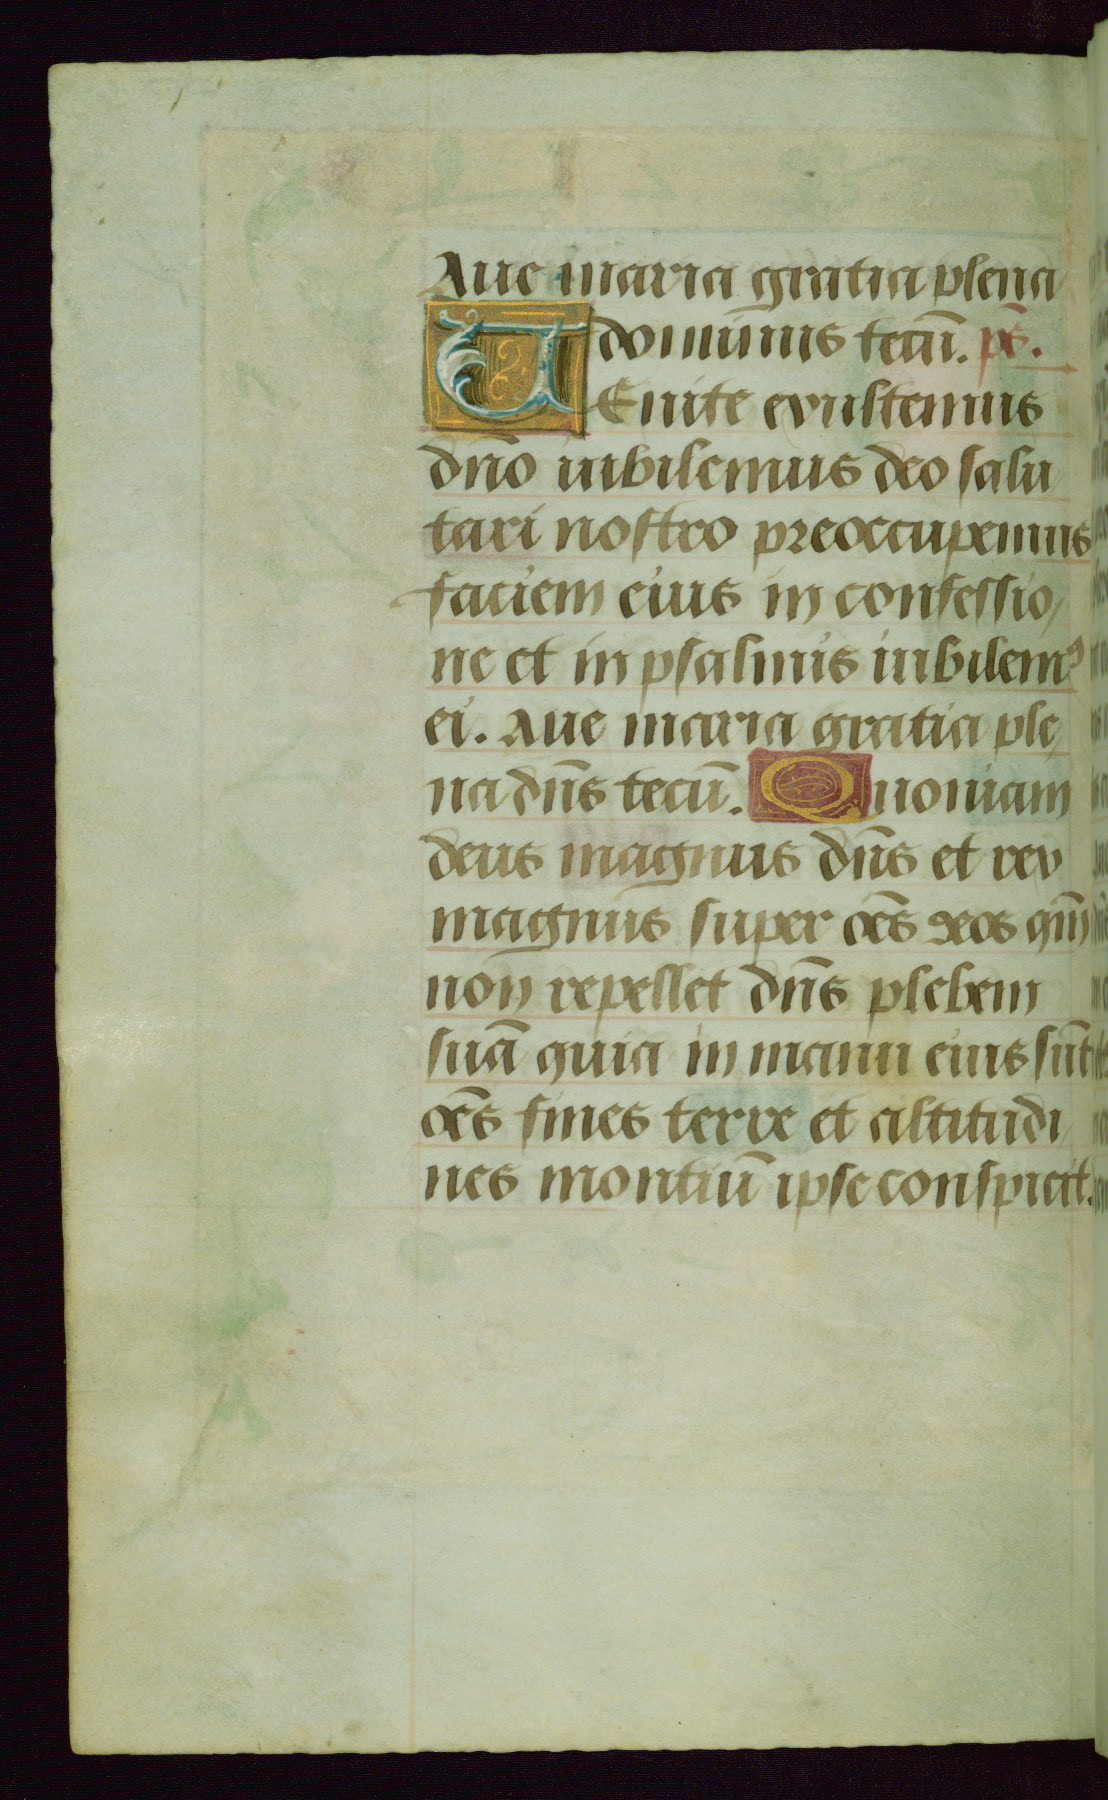 Aue maria gratia plena
dominus tecū. ps̄.
VEnite exultemus
dn̄o iubilemus deo salu
tari nostro preoccupemus
faciem eius in confessio/
ne et in psalmis iubilemꝰ
ei. Aue maria gratia ple/
na dn̄s tecū. Quoniam
deus magnus dn̄s et rex
magnus super oēs deos qm̄
non repellet dn̄s plebem
suā quia in manu eius sūt
oēs fines terre et altitudi/
nes montiū ipse conspicit.